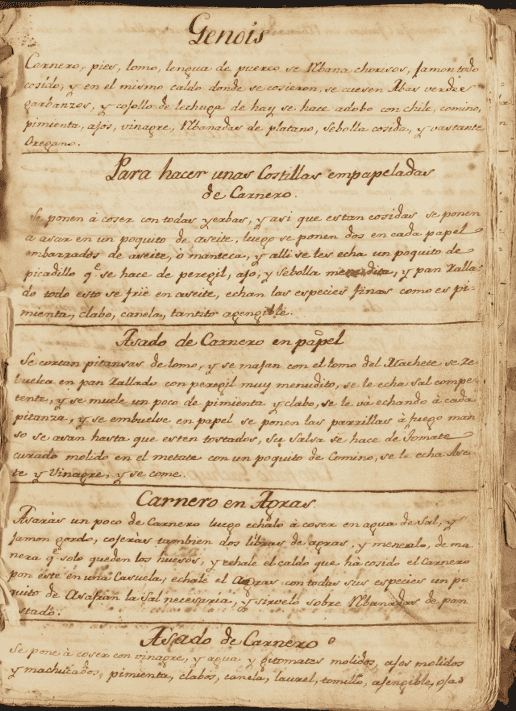 Genois
Carnero, pies, lomo, lengua de puerco se Rbana chorisos, Jamon todo
cosido, y en el mismo caldo donde se cosieron, se cuesen Abas verdes
garbanzos, y cojollo de lechuga de hay se hace adobo con chile, comino,
pimienta, ajos, vinagre, Rbanadas de platano, Sebolla cosida, y vastante
Oregano.
Para hacer unas Costillas empapeladas
de Carnero.
Se ponen à coser con todas yerbas, y asi que estan cosidas se ponen
a asar en un poquito de aseite, luego se ponen dos en cada papel
embarrados de aseite, o manteca, y alli se les echa un poquito de
picadillo qe. se hace de peregil, ajo, y Sebolla menudita, y pan Ralla-
do todo esto se frie en aseite, echan las especies finas como es pi-
mienta, clabo, canela, tantito agengible.
Asado de Carnero en papel
Se cortan pitansas de lomo, y se majan con el lomo del Machete se Re-
buelca en pan Rallado con peregil muy menudito, se le echa Sal compe-
tente, y se muele un poco de pimienta y clabo, se le và echando à cada
pitanza, y se embuelve en papel se ponen las parrillas à fuego man
so se asan hasta que esten tostados, Su Salsa se hace de Jomate
curado molido en el metate con un poquito de Comino, se le echa Asei-
te y Vinagre, y se come.
Carnero en Agras
Asaràs un poco de Carnero luego echalo à coser en agua de Sal, y
Jamon gordo, coseràs tambien dos libras de agras, y menealo, de ma-
nera qe. solo queden los huesos, y echale el caldo que hà cosido el Carnero
pon este en una Casuela, echale el Agras con todas sus especies un po-
quito de Asafran la Sal necesaria, y sirvelo sobre Rbanadas de pan
tostado.
Asado de Carnero
Se pone à coser con vinagre, y agua, y gitomates molidos, ajos molidos
y machucados, pimienta, clabos, canela, laurel, tomillo, agengible, ojas